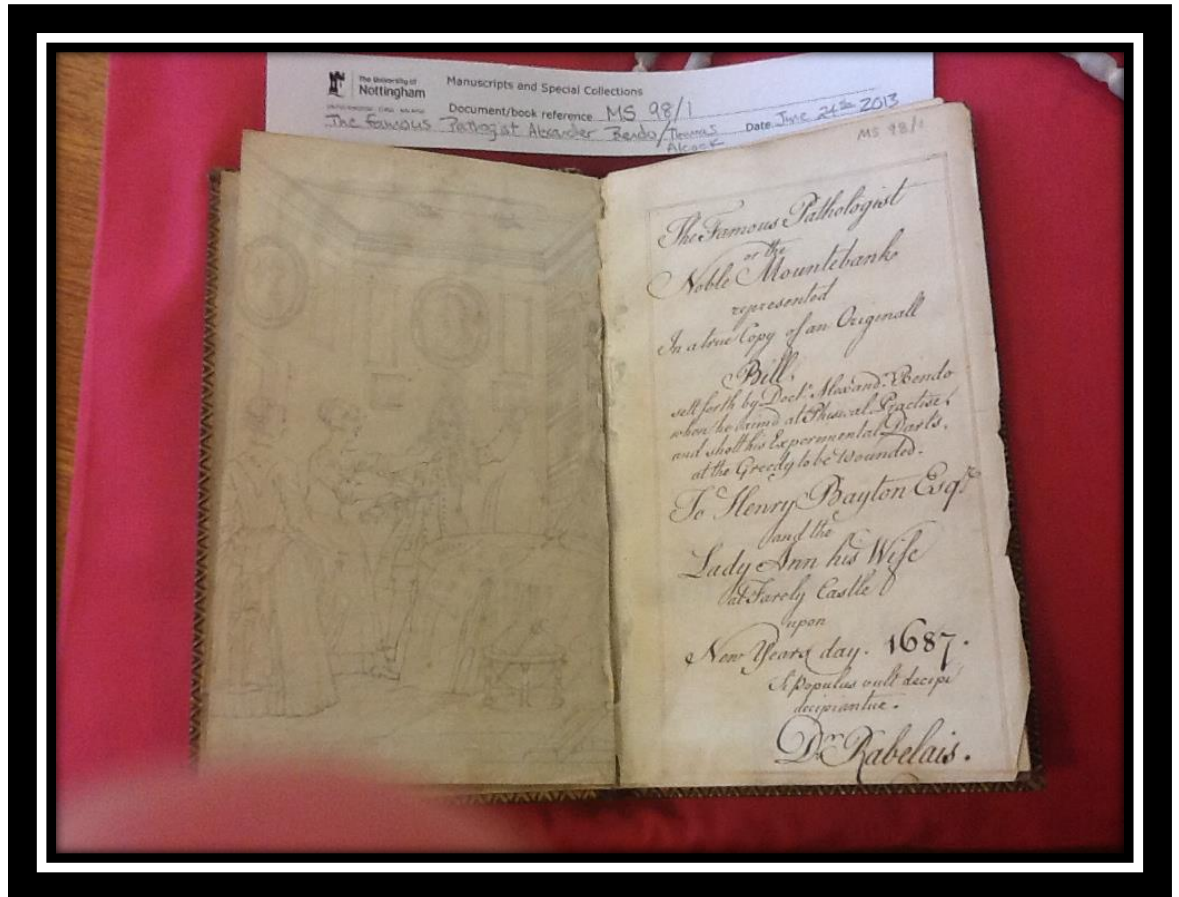 The University of
Nottingham
Manuscripts and Special Collections
Document/book reference MS 98/1
Date June 24th 2013
The Famous Patlogist Alexander Bendo/Thomas
Alcock
MS 98/1
The Famous Pathologist
or the
Noble Mountebank
represented
In a true Copy of an Originall
Bill,
sett forth by Doctr. Alexandr. Bendo
when he aimd at Phisical Practise,
and shott his Experimental Darts,
at the Greedy to be Wounded.
To Henry Bayton Esqr
and the
Lady Ann his Wife
at Farely Castle
upon
New Years day. 1687.
Si populus vult decipi
decipiantur.
Dr. Rabelais.